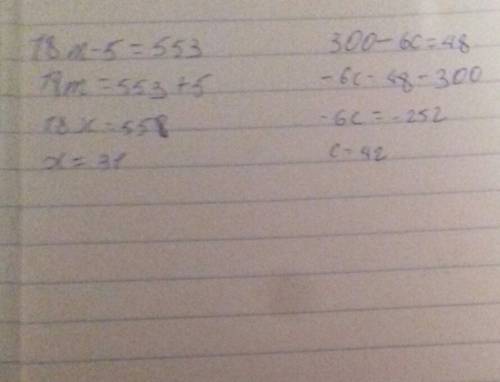 18m-5=553
18m=553+5
18x=558
x=31
300-6c=48
-6c=48-300
-6c=-252
c=42